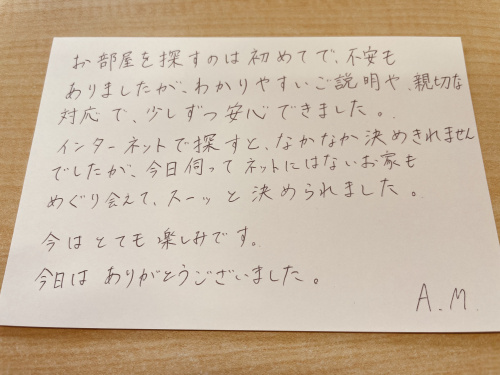 お部屋を探すのは初めてで、不安も
ありましたが、わかりやすいご説明や、親切な
対応で、少しずつ安心できました。
インターネットで探すと、なかなか決めきれません
でしたが、今日伺ってネットにはないお家も
めぐり会えて、スーッと決められました。
今はとても楽しみです。
今日はありがとうございました。
A.M.